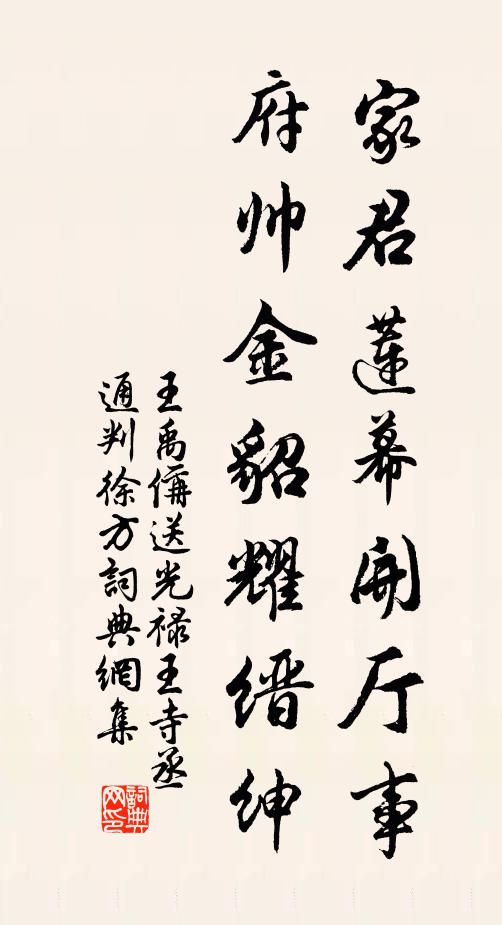 家君莲幕開厅事
府帅金貂耀缙绅
王禹偁送光禄王寺丞
通判徐方詞典網集
詞典网印